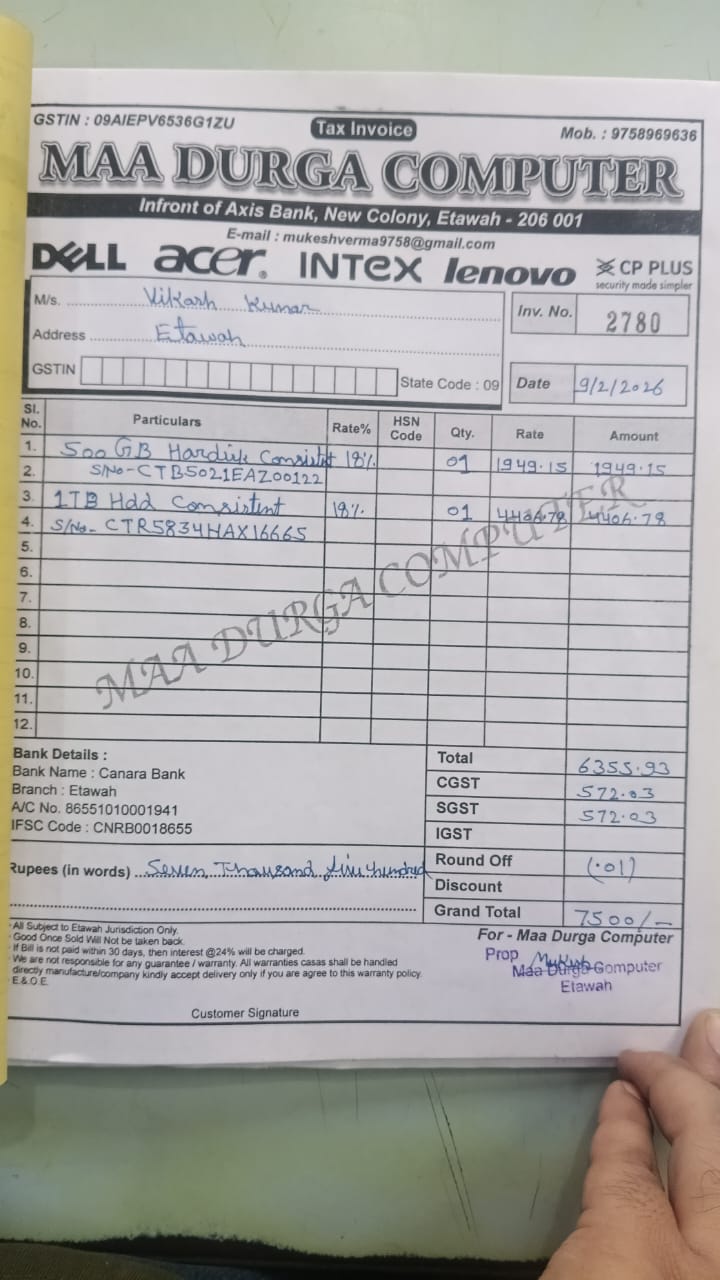 GSTIN : 09AIEPV6536G1ZU
Tax Invoice
Mob. : 9758969636
MAA DURGA COMPUTER
Infront of Axis Bank, New Colony, Etawah - 206 001
E-mail : mukeshverma9758@gmail.com
DELL acer INTEX lenovo CP PLUS
security made simpler
M/s. Vikash Kumar
Inv. No. 2780
Address Etawah
GSTIN
State Code : 09
Date 9/2/2026
Sl. No. Particulars Rate% HSN Code Qty. Rate Amount
1. 500 GB Hardisk Consistent 18% 01 1949.15 1949.15
2. S/No- CTB5021EAZ00122
3. 1TB Hdd Consistent 18% 01 4406.78 4406.78
4. S/No- CTR5834HAX16665
5.
6.
7.
8.
9.
10.
11.
12.
MAA DURGA COMPUTER
Bank Details :
Bank Name : Canara Bank
Branch : Etawah
A/C No. 86551010001941
IFSC Code : CNRB0018655
Total 6355.93
CGST 572.03
SGST 572.03
IGST
Round Off (.01)
Discount
Grand Total 7500/-
Rupees (in words) Seven Thousand five hundred
All Subject to Etawah Jurisdiction Only.
Good Once Sold Will Not be taken back.
If Bill is not paid within 30 days, then interest @24% will be charged.
We are not responsible for any guarantee / warranty. All warranties casas shall be handled
directly manufacture/company kindly accept delivery only if you are agree to this warranty policy.
E.& O.E.
Customer Signature
For - Maa Durga Computer
Prop Mukesh
Maa Durga Computer
Etawah